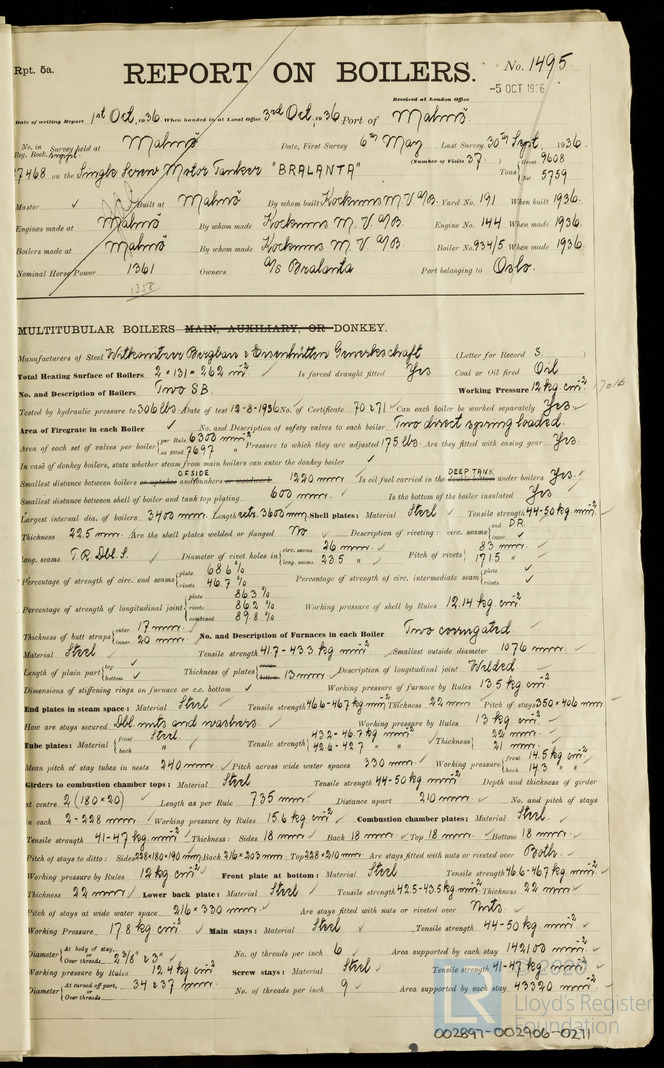 Rpt. 5a.
REPORT ON BOILERS.
No. 1495
-5 OCT 1936
Received at London Office
Date of writing Report 1st Oct, 1936 When handed in at Local Office 3rd Oct, 1936 Port of Malmö.
No. in Reg. Book. Suppt. Survey held at Malmö Date, First Survey 6th May Last Survey 30th Sept, 1936.
(Number of Visits 37)
37468 on the Single Screw Motor Tanker "BRALANTA" Tons Gross 9608 Net 5759
Master Built at Malmö By whom built Kockums M. V. A/B. Yard No. 191 When built 1936.
Engines made at Malmö By whom made Kockums M. V. A/B. Engine No. 144 When made 1936.
Boilers made at Malmö By whom made Kockums M. V. A/B. Boiler No. 934/5 When made 1936.
Nominal Horse Power 1361 Owners A/S Bralanta Port belonging to Oslo.
1358
MULTITUBULAR BOILERS MAIN, AUXILIARY, OR DONKEY.
Manufacturers of Steel Witkowitzer Bergbau & Eisenhütten Gewerkschaft (Letter for Record S. )
Total Heating Surface of Boilers 2 × 131 = 262 m² Is forced draught fitted Yes Coal or Oil fired Oil
No. and Description of Boilers Two SB. Working Pressure 12 kg cm²
Tested by hydraulic pressure to 306 lbs. Date of test 12-8-1936 No. of Certificate 70 & 71 Can each boiler be worked separately Yes.
Area of Firegrate in each Boiler No. and Description of safety valves to each boiler Two direct spring loaded.
Area of each set of valves per boiler per Rule 6300 mm² as fitted 7697 " Pressure to which they are adjusted 175 lbs. Are they fitted with easing gear Yes.
In case of donkey boilers, state whether steam from main boilers can enter the donkey boiler
Smallest distance between boilers or uptakes and bunkers or woodwork OF SIDE 1220 mm. Is oil fuel carried in the double bottom DEEP TANK under boilers Yes.
Smallest distance between shell of boiler and tank top plating 600 mm. Is the bottom of the boiler insulated Yes
Largest internal dia. of boilers 3400 mm. Length extr. 3600 mm. Shell plates: Material Steel Tensile strength 44-50 kg. mm²
Thickness 22.5 mm. Are the shell plates welded or flanged No Description of riveting: circ. seams end D.R. inter.
long. seams T.R. Dbl. S. Diameter of rivet holes in circ. seams 26 mm. long. seams 23.5 " Pitch of rivets 83 mm. 171.5 "
Percentage of strength of circ. end seams plate 68.6 % rivets 46.7 % Percentage of strength of circ. intermediate seam plate rivets
Percentage of strength of longitudinal joint plate 86.3 % rivets 86.2 % combined 89.8 % Working pressure of shell by Rules 12.14 kg cm²
Thickness of butt straps outer 17 mm. inner 20 mm. No. and Description of Furnaces in each Boiler Two corrugated
Material Steel Tensile strength 41.7-43.3 kg mm² Smallest outside diameter 1076 mm.
Length of plain part top bottom Thickness of plates crown bottom 13 mm. Description of longitudinal joint Welded
Dimensions of stiffening rings on furnace or c.c. bottom Working pressure of furnace by Rules 13.5 kg cm²
End plates in steam space: Material Steel Tensile strength 46.6-46.7 kg mm² Thickness 22 mm. Pitch of stays 350 × 406 mm.
How are stays secured Dbl. nuts and washers. Working pressure by Rules 13 kg cm²
Tube plates: Material front Steel. back " Tensile strength 43.2-46.7 kg mm² 42.6-42.7 " " Thickness 22 mm. 21 mm.
Mean pitch of stay tubes in nests 240 mm. Pitch across wide water spaces 330 mm. Working pressure front 14.5 kg cm² back 14.3 " "
Girders to combustion chamber tops: Material Steel Tensile strength 44-50 kg mm² Depth and thickness of girder
at centre 2 (180 × 20) Length as per Rule 735 mm. Distance apart 210 mm. No. and pitch of stays
in each 2 - 228 mm. Working pressure by Rules 15.6 kg cm². Combustion chamber plates: Material Steel.
Tensile strength 41-47 kg mm² Thickness: Sides 18 mm. Back 18 mm. Top 18 mm. Bottom 18 mm.
Pitch of stays to ditto: Sides 228×180×190 mm Back 216 × 203 mm. Top 228 × 210 mm. Are stays fitted with nuts or riveted over Both.
Working pressure by Rules 12 kg cm² Front plate at bottom: Material Steel Tensile strength 46.6-46.7 kg mm²
Thickness 22 mm. Lower back plate: Material Steel Tensile strength 42.5-43.5 kg mm² Thickness 22 mm.
Pitch of stays at wide water space 216 × 330 mm. Are stays fitted with nuts or riveted over Nuts.
Working Pressure 17.8 kg cm². Main stays: Material Steel Tensile strength 44-50 kg mm²
Diameter At body of stay, or Over threads 2 3/8" & 3" No. of threads per inch 6 Area supported by each stay 142100 mm².
Working pressure by Rules 12.4 kg cm² Screw stays: Material Steel Tensile strength 41-47 kg mm²
Diameter At turned off part, or Over threads 34 & 37 mm. No. of threads per inch 9 Area supported by each stay 43320 mm².
© 2020
LR
Lloyd's Register
Foundation
002897-002906-0271